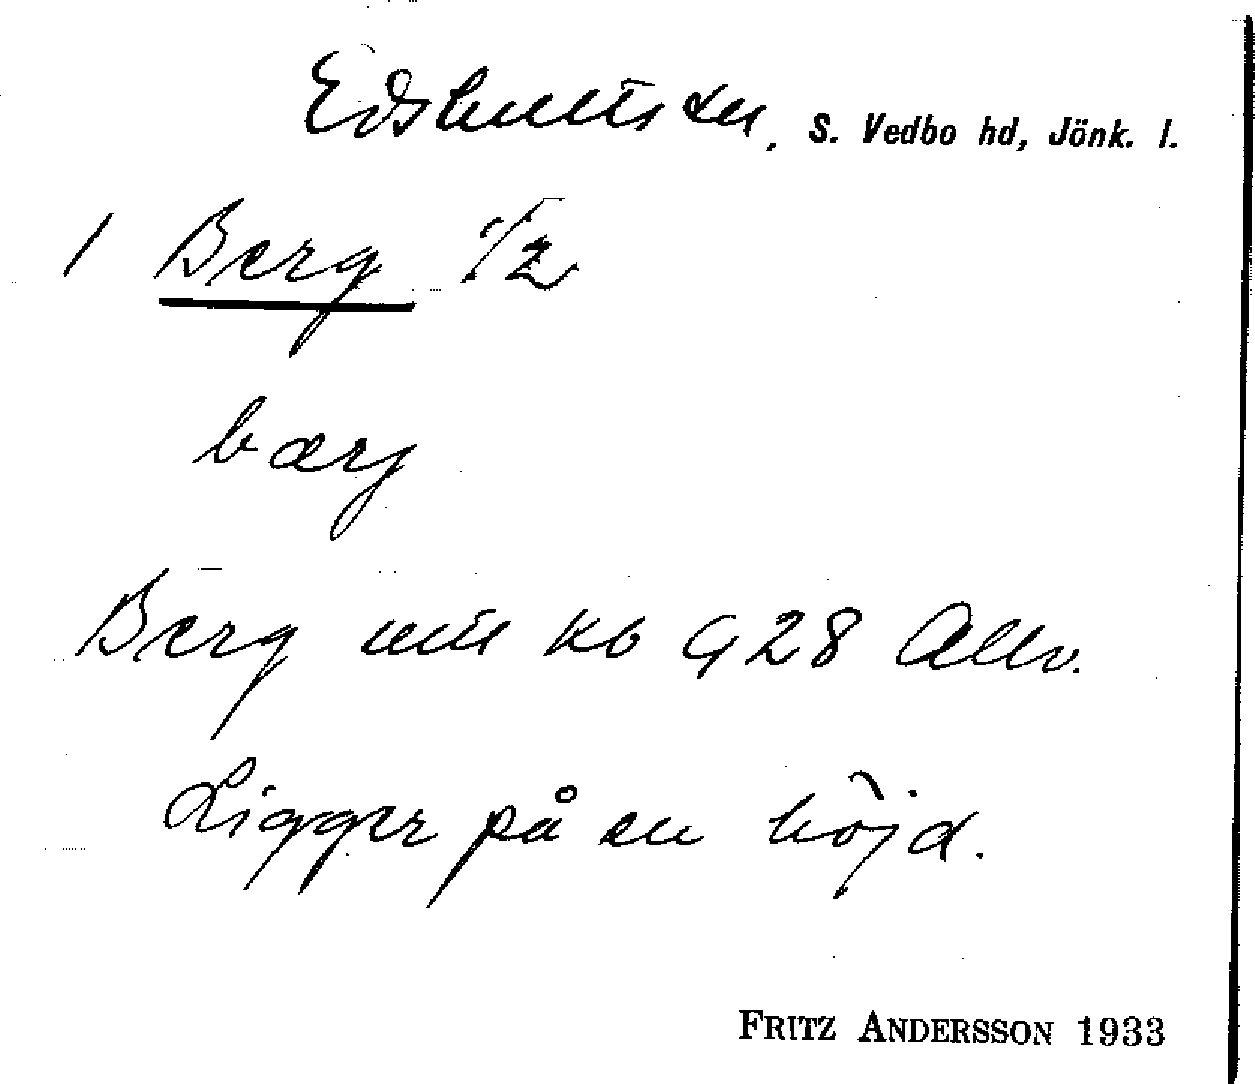 Edshult sn, S. Vedbo hd, Jönk. l.
1 Berg 1/2
bærj
Berg mtl kb G 28 Allv.
Ligger på en höjd.
FRITZ ANDERSSON 1933